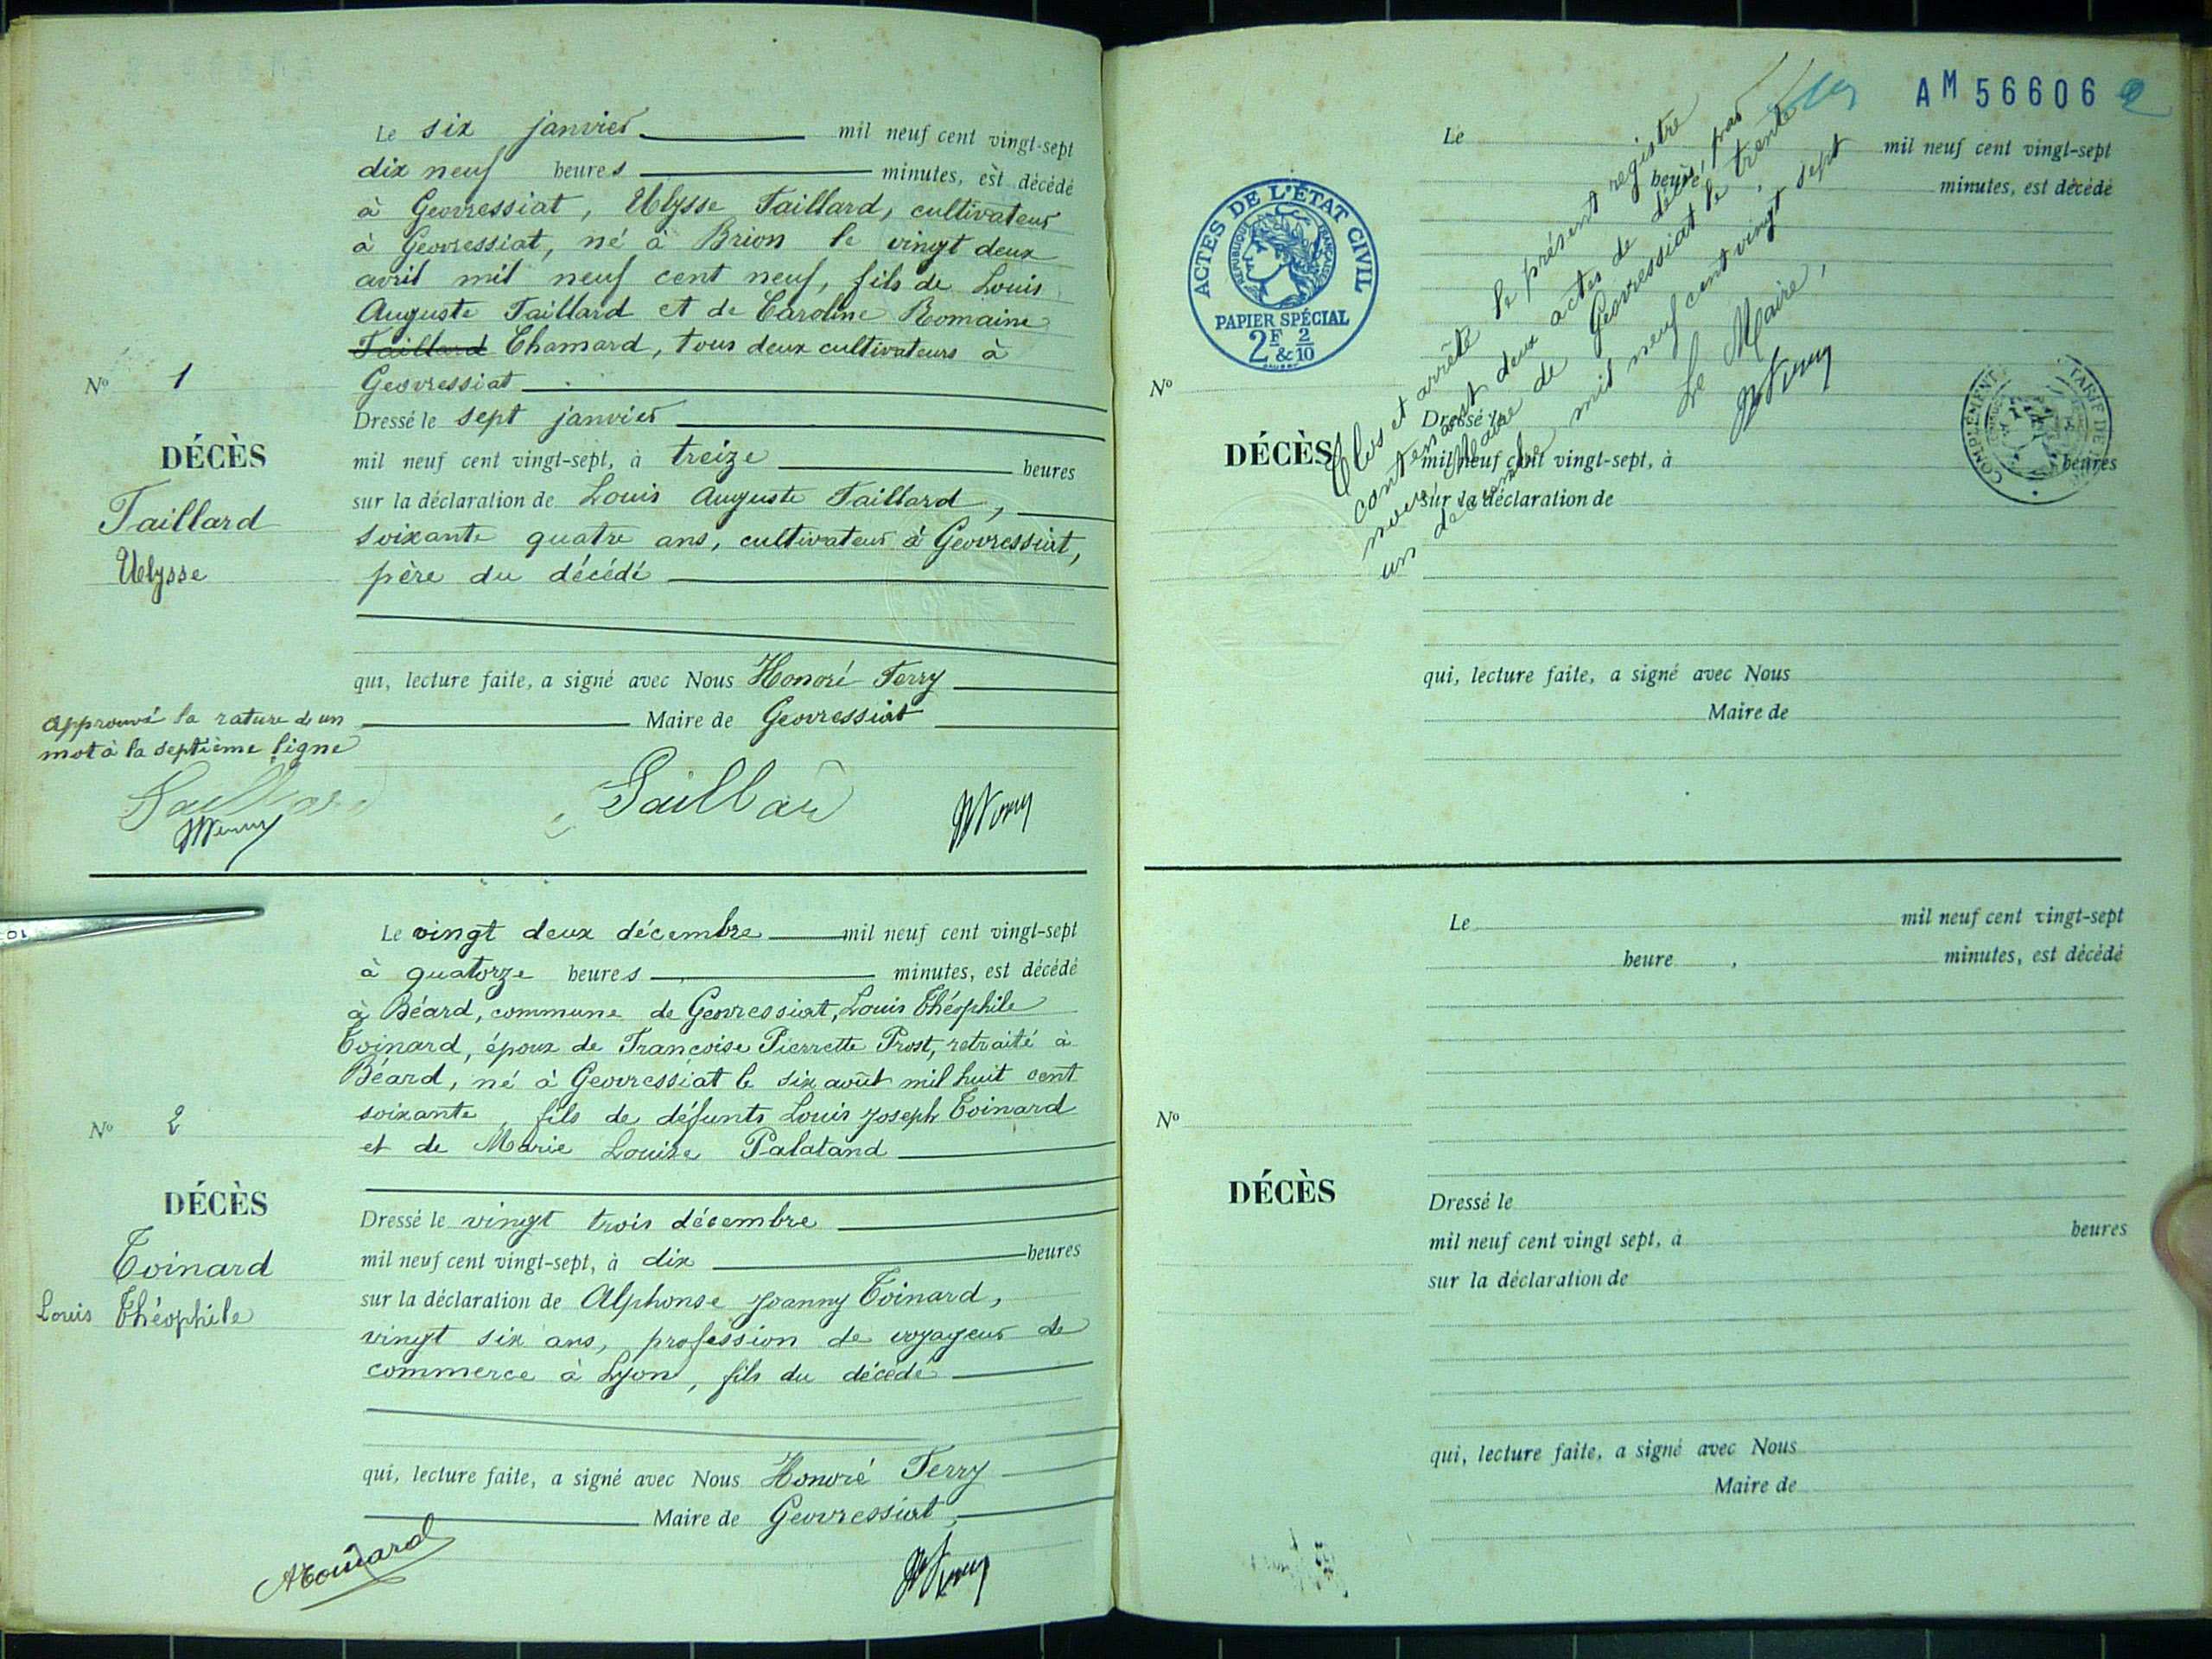 Le six janvier mil neuf cent vingt-sept
dix neuf heures minutes, est décédé
à Geovressiat, Ulysse Taillard, cultivateur
à Geovressiat, né à Brion le vingt deux
avril mil neuf cent neuf, fils de Louis
Auguste Taillard et de Caroline Romaine
Taillard Chamard, tous deux cultivateurs à
Geovressiat
Nº 1
DÉCÈS
Taillard
Ulysse
Dressé le sept janvier
mil neuf cent vingt-sept, à treize heures
sur la déclaration de Louis Auguste Taillard,
soixante quatre ans, cultivateur à Geovressiat,
père du décédé
qui, lecture faite, a signé avec Nous Honoré Ferry
Maire de Geovressiat
Approuvé la rature de un
mot à la septième ligne
Taillard
Taillard
Le vingt deux décembre mil neuf cent vingt-sept
à quatorze heures minutes, est décédé
à Béard, commune de Geovressiat, Louis Théophile
Toinard, époux de Françoise Pierrette Prost, retraité à
Béard, né à Geovressiat le six août mil huit cent
soixante, fils de défunts Louis Joseph Toinard
et de Marie Louise Palatand
Nº 2
DÉCÈS
Toinard
Louis Théophile
Dressé le vingt trois décembre
mil neuf cent vingt-sept, à dix heures
sur la déclaration de Alphonse Joanny Toinard,
vingt six ans, profession de voyageur de
commerce à Lyon, fils du décédé
qui, lecture faite, a signé avec Nous Honoré Ferry
Maire de Geovressiat
AToinard
AM 56606 2
ACTES DE L'ÉTAT CIVIL
RÉPUBLIQUE FRANÇAISE
PAPIER SPÉCIAL
2F & 2/10
Clos et arrêté le présent registre
contenant deux actes de décès, par
nous Maire de Geovressiat le trente
un décembre mil neuf cent vingt sept
Le Maire,
COMPLÉMENT TARIF DE
Le mil neuf cent vingt-sept
heure, minutes, est décédé
Nº
DÉCÈS
Dressé le
mil neuf cent vingt-sept, à heures
sur la déclaration de
qui, lecture faite, a signé avec Nous
Maire de
Le mil neuf cent vingt-sept
heure, minutes, est décédé
Nº
DÉCÈS
Dressé le
mil neuf cent vingt sept, à heures
sur la déclaration de
qui, lecture faite, a signé avec Nous
Maire de
10